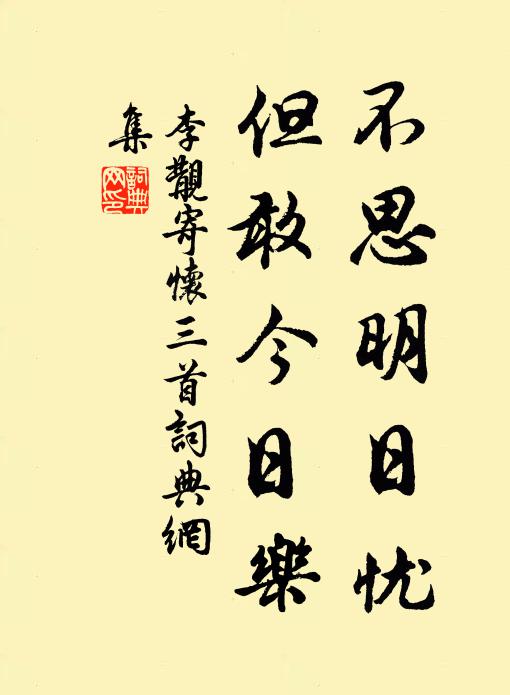 不思明日忧
但敢今日樂
李覯寄懷三首詞典網
集
詞典
网印